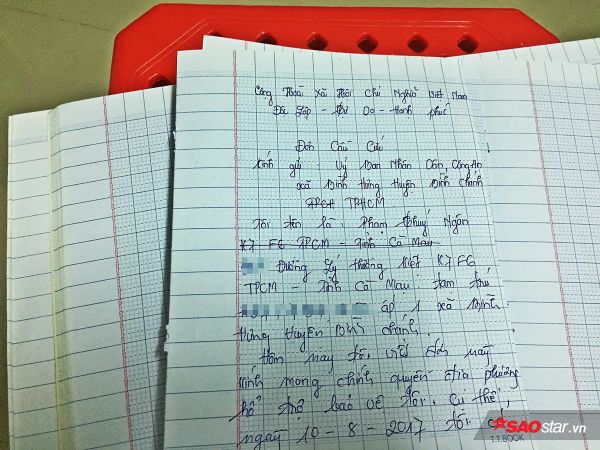 Cộng Hoà Xã Hội Chủ Nghĩa Việt Nam
Độc Lập - Tự Do - Hạnh phúc
Đơn Cầu Cứu
Kính gửi Uỷ Ban Nhân Dân, Công An
xã Bình Hưng Huyện Bình Chánh
TPCM
Tôi tên là: Phạm Thuý Ngân
K7 F6 TPCM - Tỉnh Cà Mau
Đường Lý Thường Kiệt K7 F6
TPCM - Tỉnh Cà Mau tạm trú
ấp 1 xã Bình
Hưng Huyện Bình Chánh.
Hôm nay tôi viết đơn này
kính mong chính quyền địa phương
hổ trợ bảo vệ tôi. Cụ thể,
ngày 10 - 8 - 2017 tôi
SAOstar.vn
T.T.BOOK